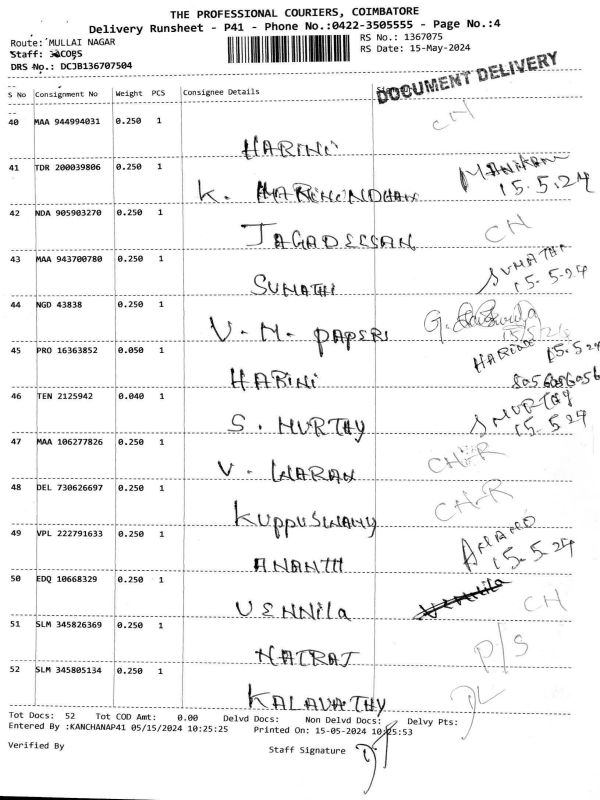 THE PROFESSIONAL COURIERS, COIMBATORE
Delivery Runsheet - P41 - Phone No.:0422-3505555 - Page No.:4
Route: MULLAI NAGAR
RS No.: 1367075
Staff: JACOBS
RS Date: 15-May-2024
DRS No.: DCJB136707504
DOCUMENT DELIVERY
S No Consignment No Weight PCS Consignee Details
40 MAA 944994031 0.250 1 HARINI CH
41 TDR 200039806 0.250 1 K. 15.5.24
42 NDA 905903270 0.250 1 JAGADESSAN CH
43 MAA 943700780 0.250 1 SUMATHI SUMATHI 15.5-24
44 NGD 43838 0.250 1 V.M. PAPSRI G.
45 PRO 16363852 0.050 1 HARINI 15.5.24 8056086056
46 TEN 2125942 0.040 1 S. MURTHY S MURTHY 15.5.24
47 MAA 106277826 0.250 1 V. CH-R
48 DEL 730626697 0.250 1 KUPPUSWAMY CH-R
49 VPL 222791633 0.250 1 ANANTH 15.5-24
50 EDQ 10668329 0.250 1 VENNILA CH
51 SLM 345826369 0.250 1 NATRAJ P/S
52 SLM 345805134 0.250 1 KALAVATHY DL
Tot Docs: 52 Tot COD Amt: 0.00 Delvd Docs: Non Delvd Docs: Delvy Pts:
Entered By :KANCHANAP41 05/15/2024 10:25:25 Printed On: 15-05-2024 10:25:53
Verified By Staff Signature